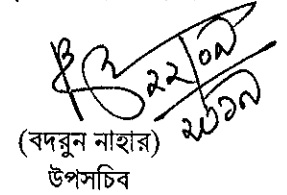 ২২/০৯
২০১৯
(বদরুন নাহার)
উপসচিব